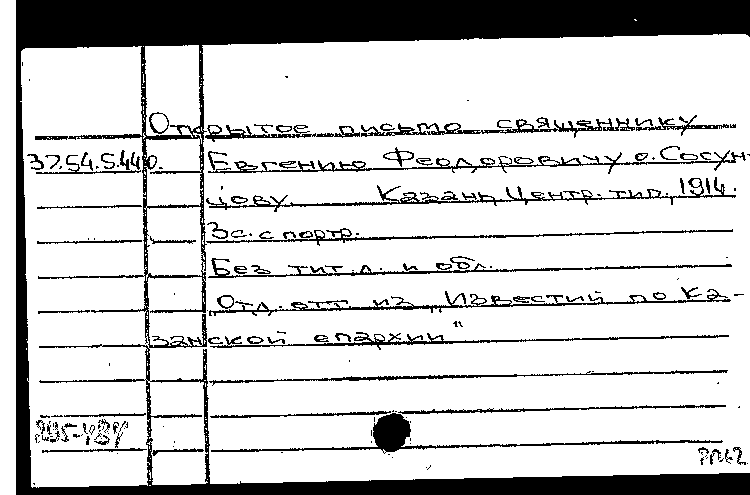 Открытое письмо священнику
37.54.5.440. Евгению Феодоровичу о. Сосун-
цову. Казань, Центр. тип., 1914.
3с. с портр.
Без тит. л. и обл.
Отд. отт. из „Известий по Ка-
занской епархии"
295-484